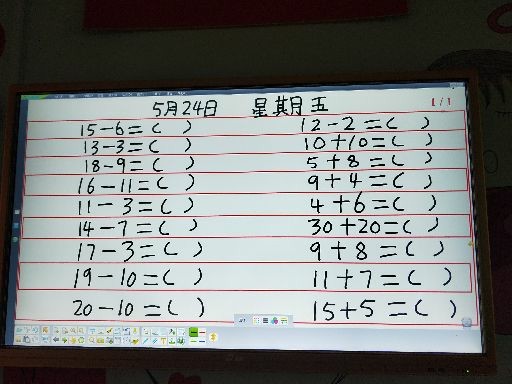 5月24日 星期五
1/1
15-6=( ) 12-2=( )
13-3=( ) 10+10=( )
18-9=( ) 5+8=( )
16-11=( ) 9+4=( )
11-3=( ) 4+6=( )
14-7=( ) 30+20=( )
17-3=( ) 9+8=( )
19-10=( ) 11+7=( )
20-10=( ) 15+5=( )